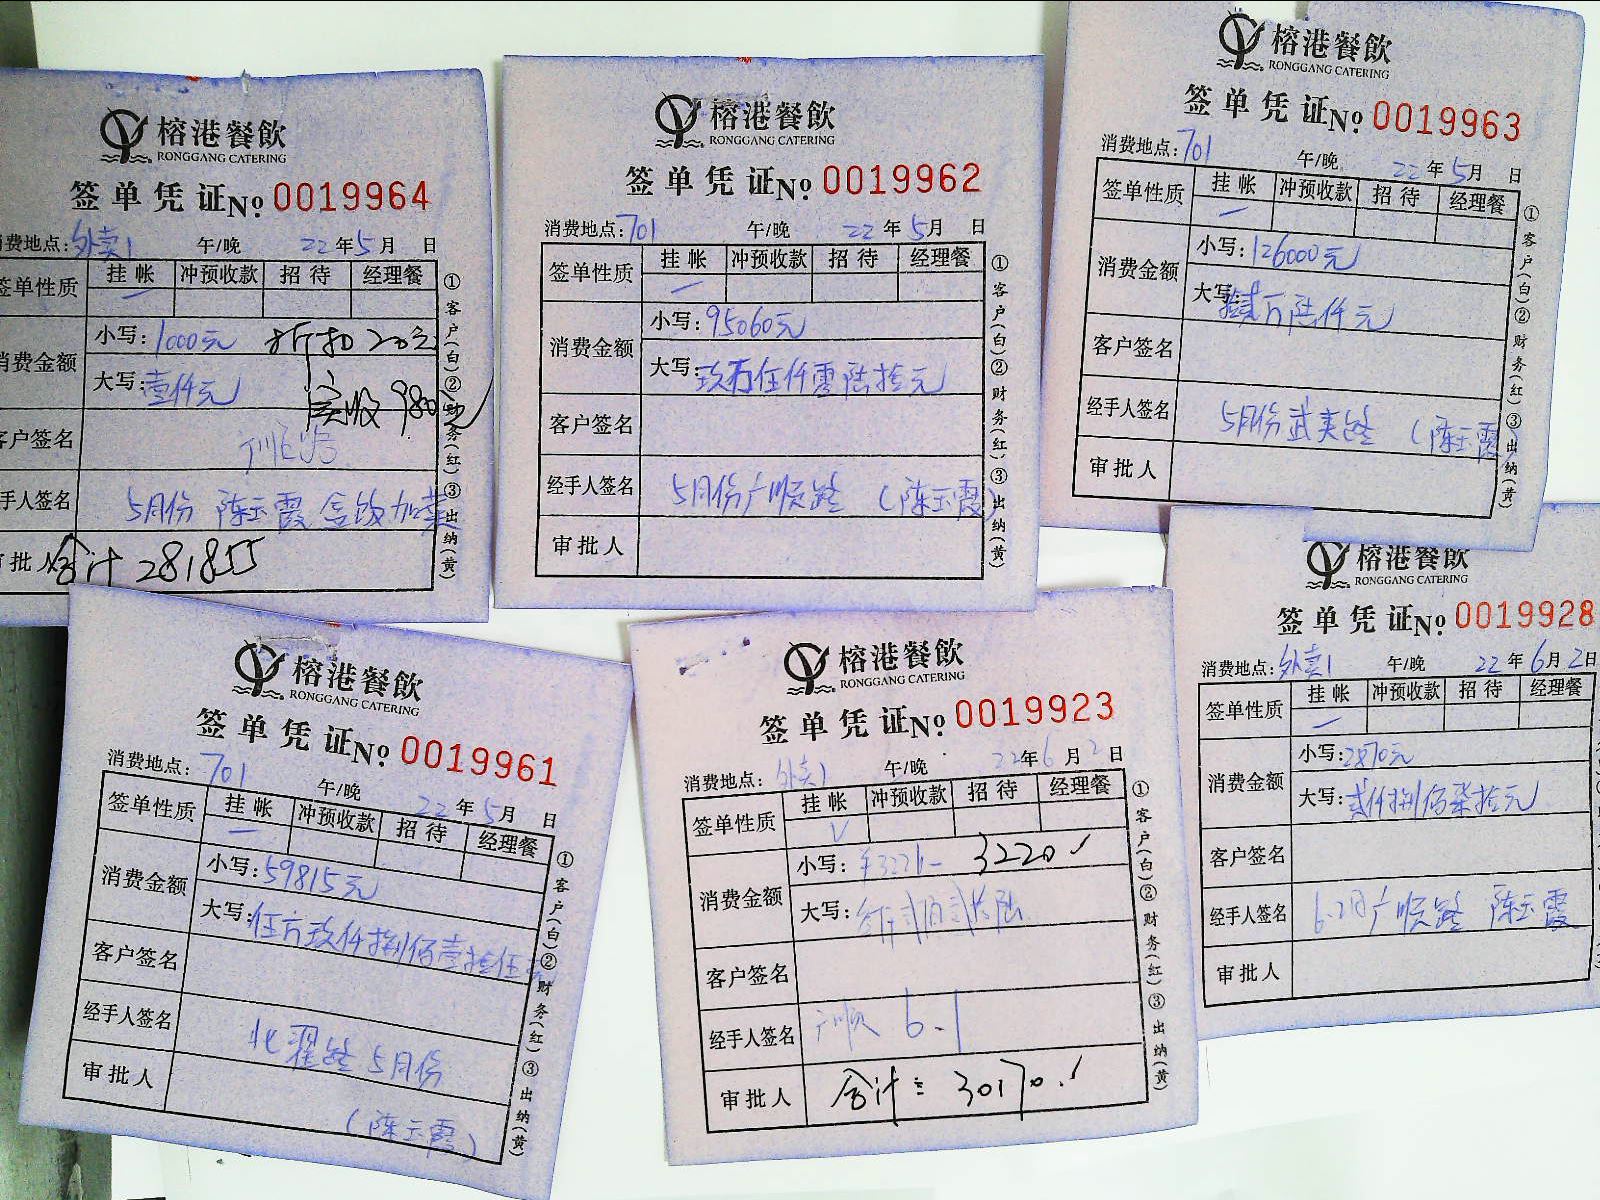 榕港餐飲
RONGGANG CATERING
签单凭证No. 0019964
消费地点:外卖1 午/晚 22年5月 日
签单性质 挂帐 冲预收款 招待 经理餐
消费金额 小写:1000元 折扣20元
大写:壹仟元 实收980
客户签名
经手人签名 5月份 陈玉霞 盒饭加菜
审批人 合计 281855
①客户(白)②财务(红)③出纳(黄)
榕港餐飲
RONGGANG CATERING
签单凭证No. 0019962
消费地点:701 午/晚 22年5月 日
签单性质 挂帐 冲预收款 招待 经理餐
消费金额 小写:95060元
大写:玖万伍仟零陆拾元
客户签名
经手人签名 5月份广顺路 (陈玉霞)
审批人
①客户(白)②财务(红)③出纳(黄)
榕港餐飲
RONGGANG CATERING
签单凭证No. 0019963
消费地点:701 午/晚 22年5月 日
签单性质 挂帐 冲预收款 招待 经理餐
消费金额 小写:126000元
大写: 万陆仟元
客户签名
经手人签名 5月份武夷路 (陈玉霞)
审批人
①客户(白)②财务(红)③出纳(黄)
榕港餐飲
RONGGANG CATERING
签单凭证No. 0019961
消费地点:701 午/晚 22年5月 日
签单性质 挂帐 冲预收款 招待 经理餐
消费金额 小写:59815元
大写:伍万玖仟捌佰壹拾伍元
客户签名
经手人签名 北翟路 5月份
审批人
(陈玉霞)
①客户(白)②财务(红)③出纳(黄)
榕港餐飲
RONGGANG CATERING
签单凭证No. 0019923
消费地点:外卖1 午/晚 22年6月2日
签单性质 挂帐 冲预收款 招待 经理餐
消费金额 小写: 3220
大写:
客户签名
经手人签名 广顺 6.1
审批人 合计:30170
①客户(白)②财务(红)③出纳(黄)
榕港餐飲
RONGGANG CATERING
签单凭证No. 0019928
消费地点:外卖1 午/晚 22年6月2日
签单性质 挂帐 冲预收款 招待 经理餐
消费金额 小写:2870元
大写:贰仟捌佰柒拾元
客户签名
经手人签名 6.2日广顺路 陈玉霞
审批人